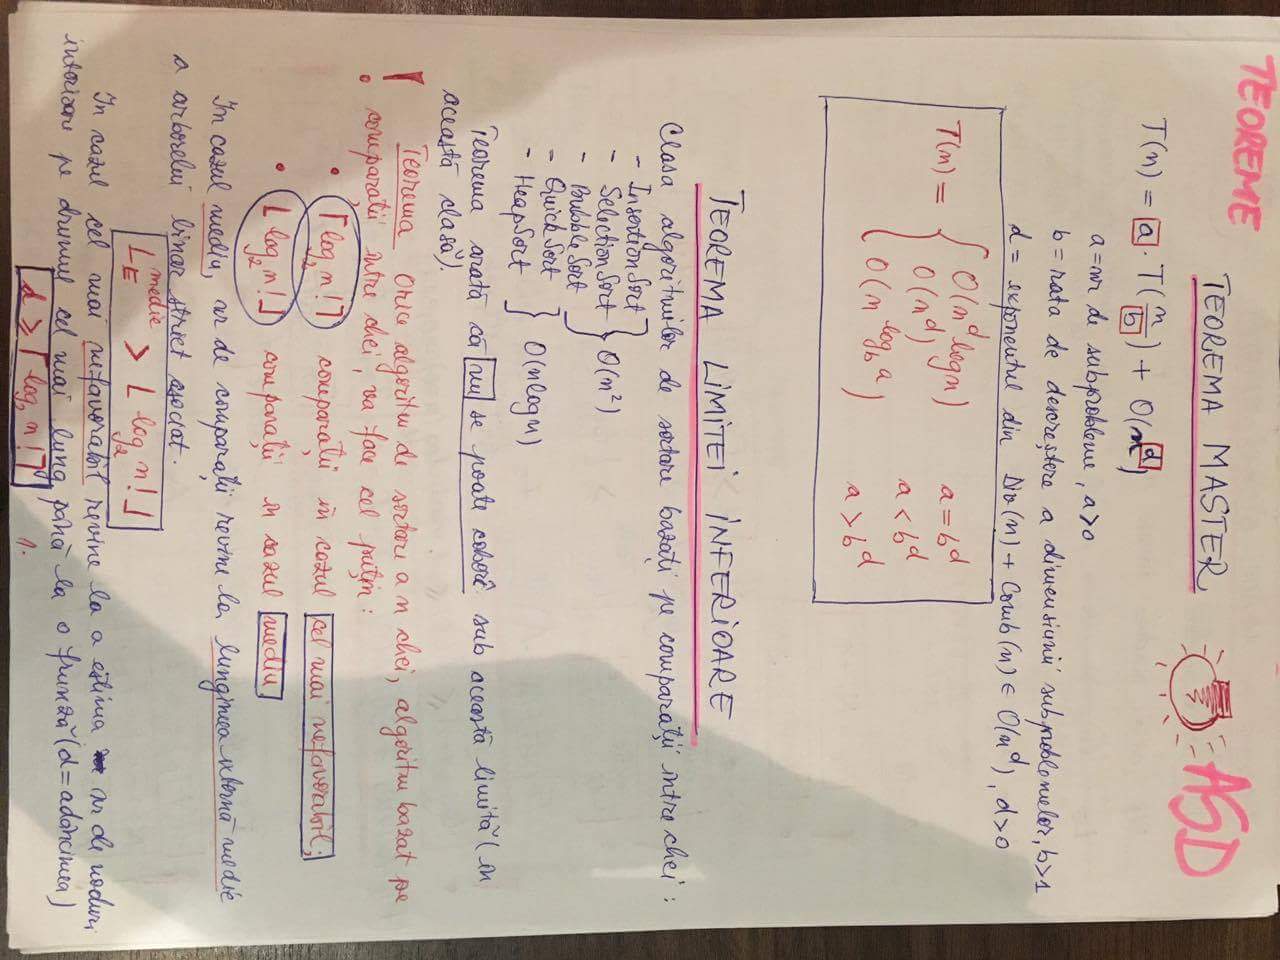 TEOREME
TEOREMA MASTER
ASD
T(n) = a · T(n/b) + O(n^d)
a = nr de subprobleme, a>0
b = rata de descreștere a dimensiunii subproblemelor, b>1
d = exponentul din Div(n) + Comb(n) ∈ O(n^d), d>0
T(n) = { O(n^d logn) a = b^d
O(n^d) a < b^d
O(n^log_b a) a > b^d
TEOREMA LIMITEI INFERIOARE
Clasa algoritmilor de sortare bazați pe comparații între chei:
- InsertionSort
- SelectionSort } O(n²)
- BubbleSort
- QuickSort } O(nlogn)
- HeapSort
Teorema arată că nu se poate coborî sub această limită (în
această clasă).
! Teorema Orice algoritm de sortare a n chei, algoritm bazat pe
comparații între chei, va face cel puțin:
• ⌈log₂n!⌉ comparații în cazul cel mai nefavorabil;
• ⌊log₂n!⌋ comparații în cazul mediu
În cazul mediu, nr de comparații revine la lungimea externă medie
a arborelui binar strict asociat.
L_E^medie > ⌊log₂n!⌋
În cazul cel mai nefavorabil revine la a estima nr de noduri
interioare pe drumul cel mai lung până la o frunză (d = adâncimea)
d ≥ ⌈log₂n!⌉ 1.